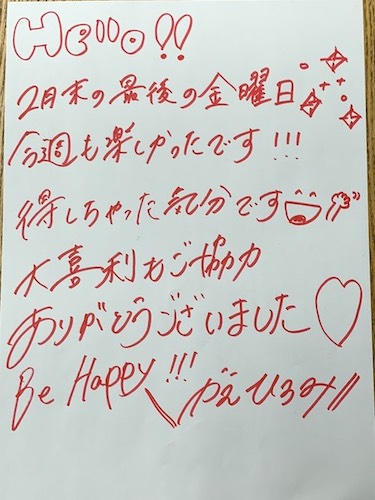 Hello!!
2月末の最後の金曜日
今週も楽しかったです!!!
得しちゃった気分です
大喜利もご協力
ありがとうございました♡
Be Happy!!!
\\がえひろみ//